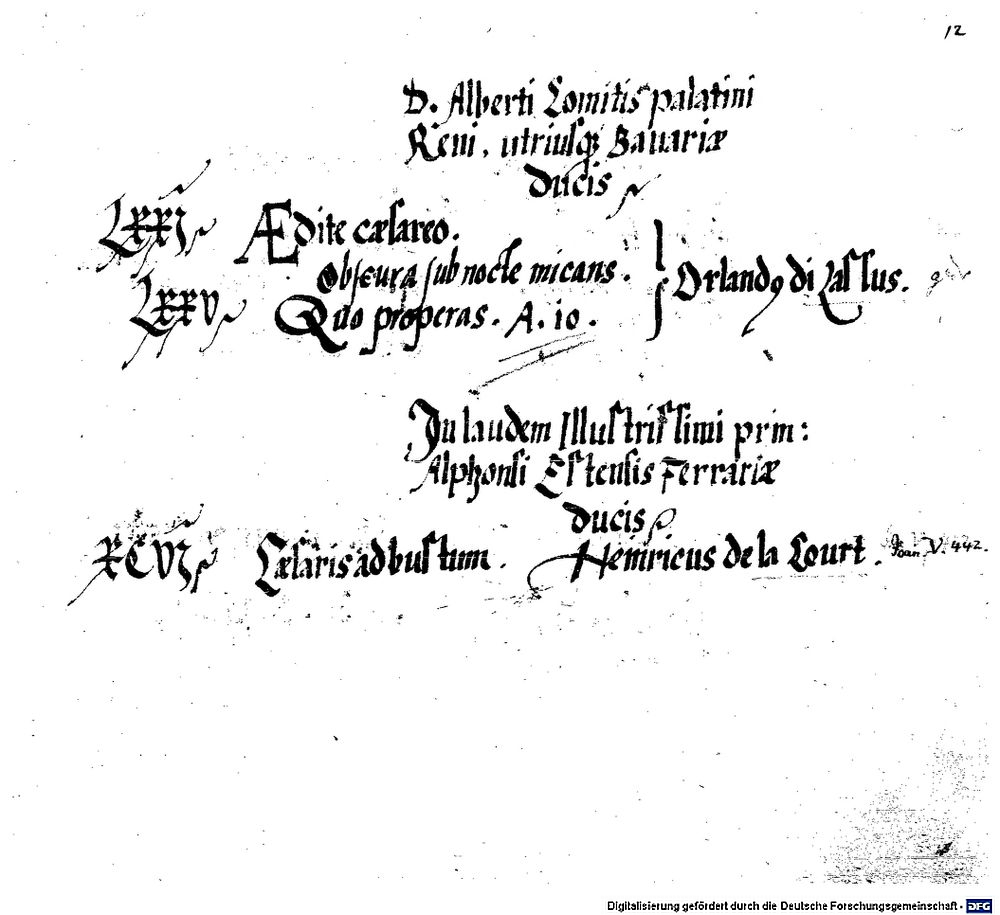 12
D. Alberti Comitis palatini
Reni, utriusq; Bavariæ
Ducis
LXXI Ædite cæsareo.
Obscura sub nocte micans. Orlandꝰ di Lassus.
LXXV Quo properas. A. 10.
In laudem Illustrissimi prin:
Alphonsi Estensis Ferrariæ
Ducis
XCVI Cæsaris ad bustum. Heinricus de la Court. Joan V. 442.
Digitalisierung gefördert durch die Deutsche Forschungsgemeinschaft - DFG